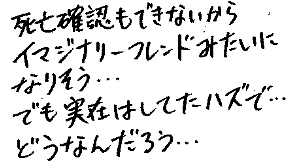 死亡確認もできないから
イマジナリーフレンドみたいに
なりそう…
でも実在はしてたハズで…
どうなんだろう…